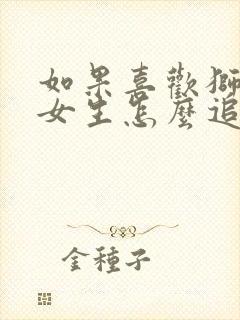 如果喜歡獅
女生怎麼追
金種子